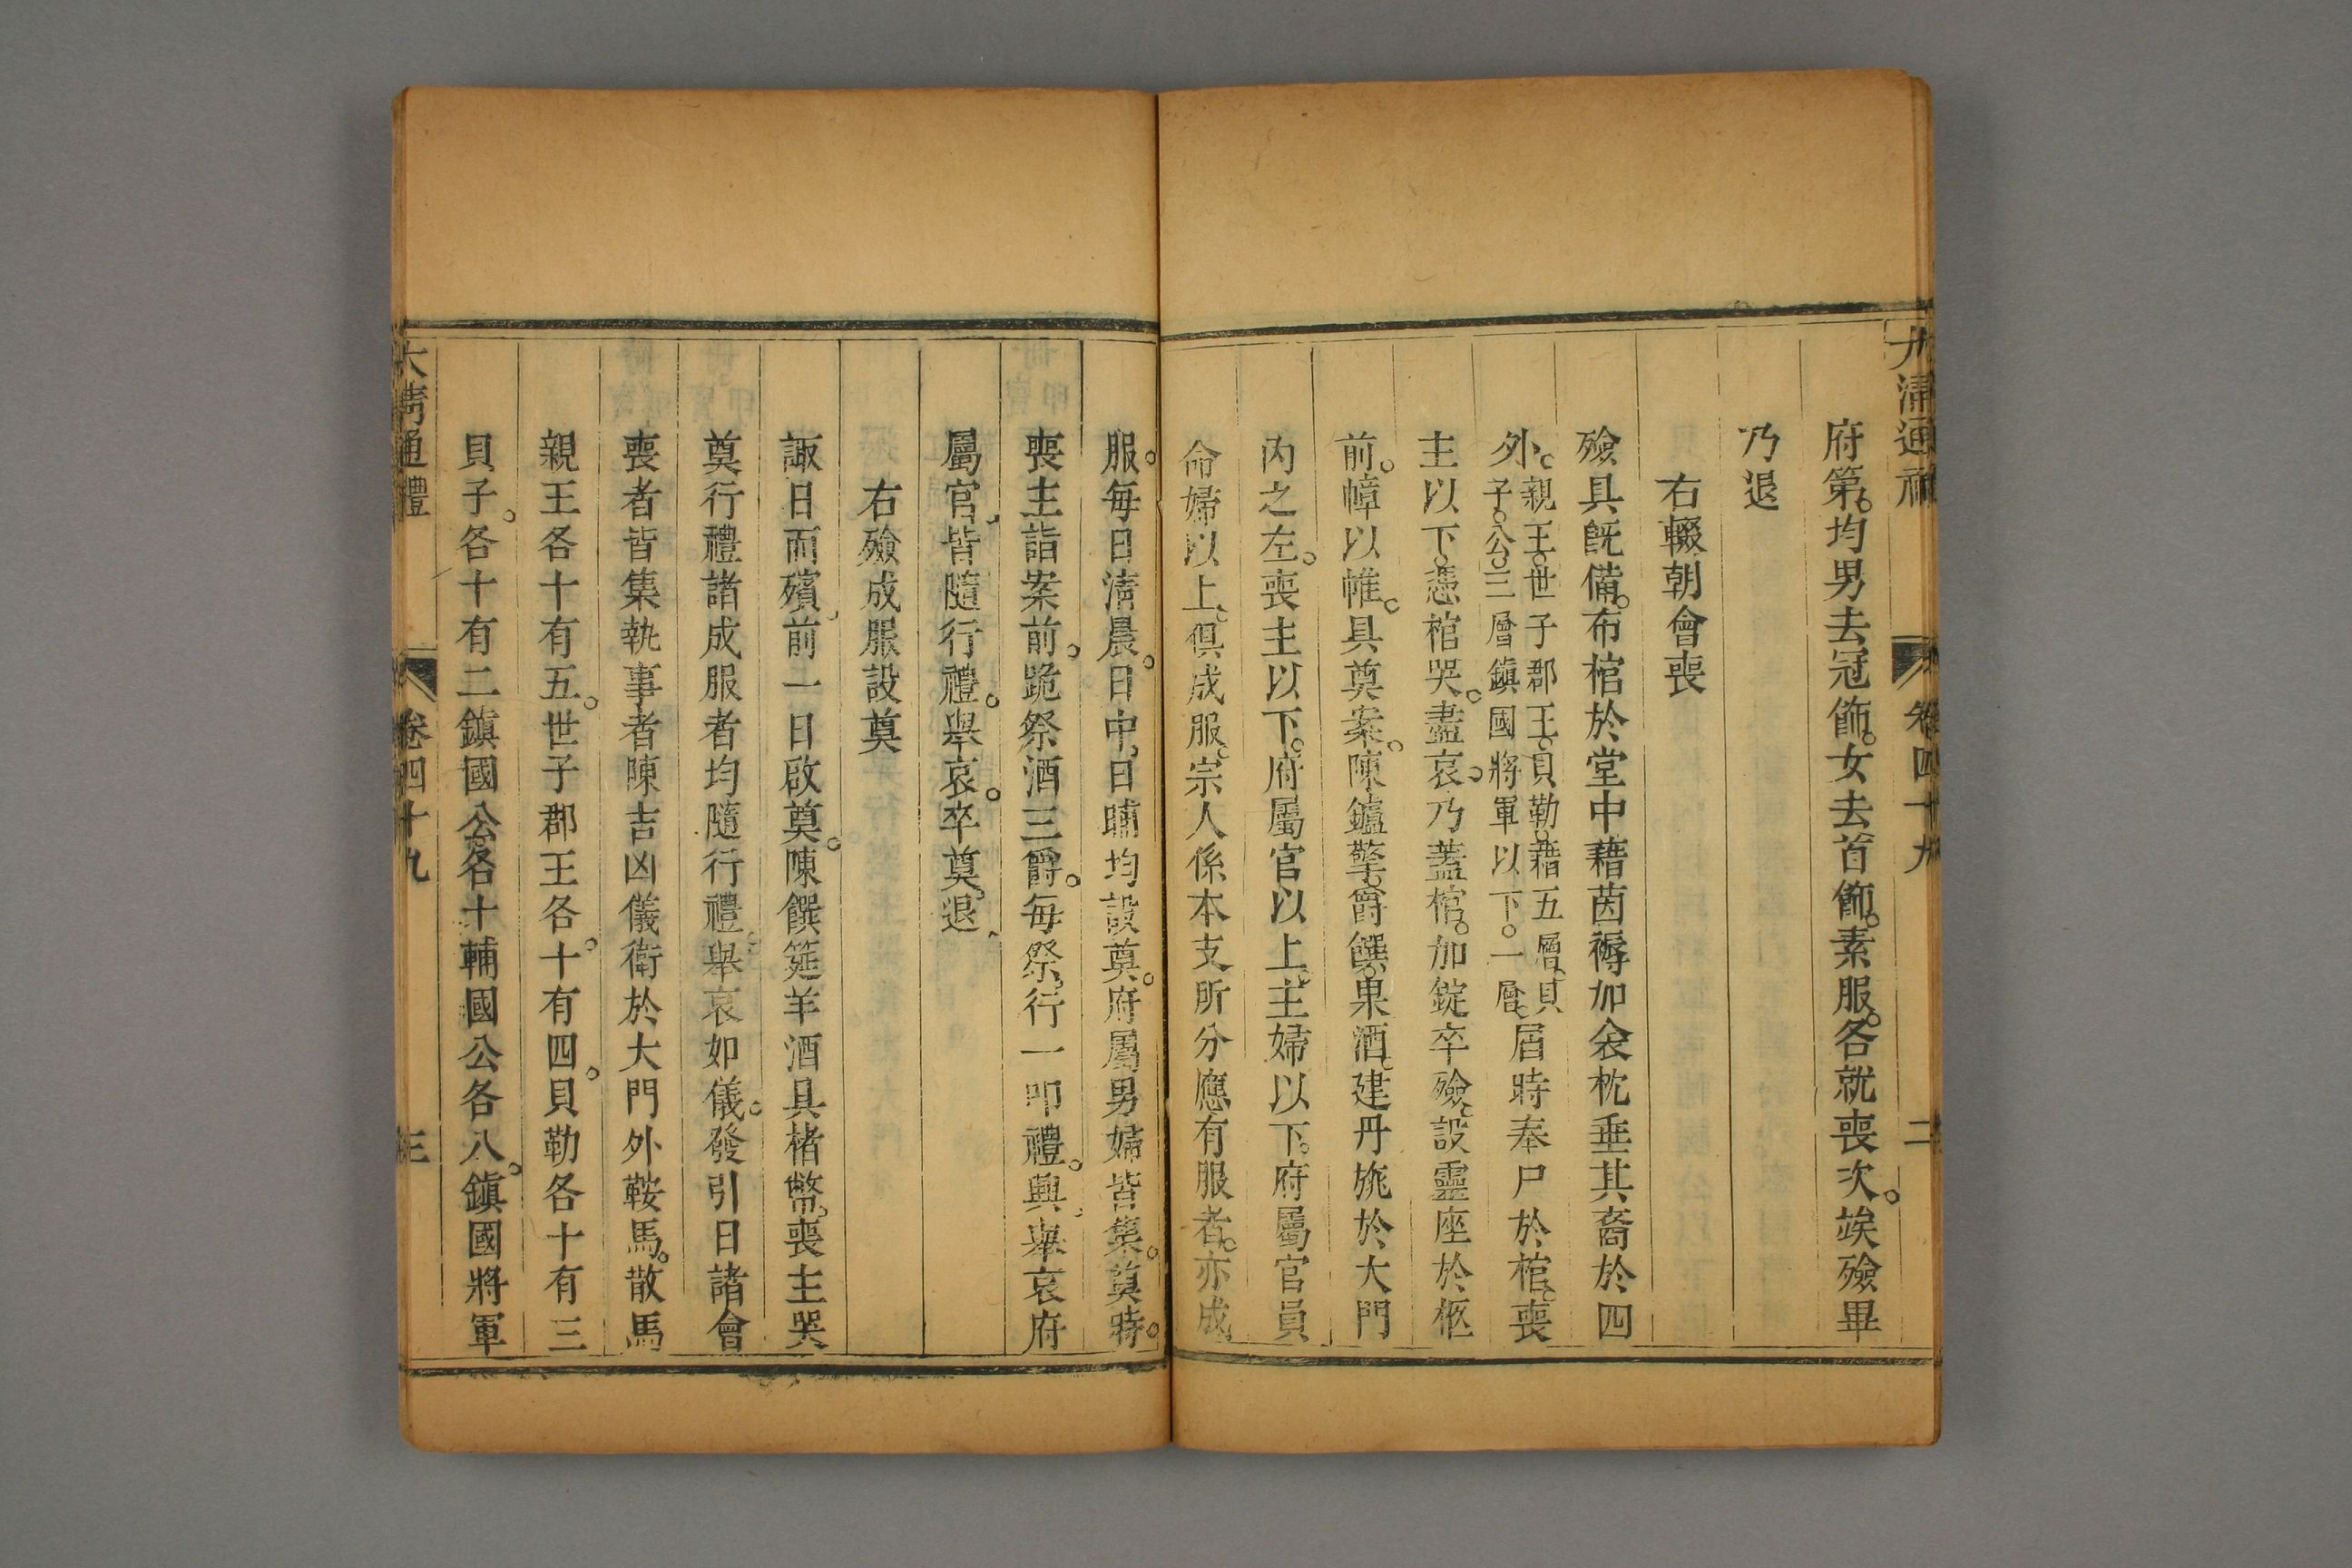 大清通禮 卷四十九 二
府第。均男去冠飾。女去首飾。素服。各就喪次。竢殮畢
乃退
右輟朝會喪
殮具旣備。布棺於堂中藉茵褥加衾枕垂其裔於四
外。親王。世子郡王。貝勒。藉五層。貝子。公。三層鎮國將軍以下。一層。屆時奉尸於棺。喪
主以下。憑棺哭。盡哀。乃蓋棺。加錠卒殮。設靈座於柩
前。幃以帷。具奠案。陳鑪檠。爵饌。果酒。建丹旐於大門
內之左。喪主以下。府屬官以上。主婦以下。府屬官員
命婦以上。俱成服。宗人係本支所分應有服者。亦成
服。每日清晨。日中。日晡均設奠。府屬男婦皆集。奠時。
喪主詣案前。跪祭酒三爵。每祭。行一叩禮。興。舉哀府
屬官。皆隨行禮。舉哀。卒奠。退。
右殮成服設奠
諏日而殯。前一日啟奠。陳饌筵羊酒具楮幣。喪主哭
奠行禮諸成服者均隨行禮。舉哀如儀。發引日諸會
喪者皆集執事者陳吉凶儀衛於大門外鞍馬。散馬
親王各十有五。世子郡王各。十有四。貝勒各十有三
貝子。各十有二鎮國公。各十輔國公各八。鎮國將軍
大清通禮 卷四十九 三